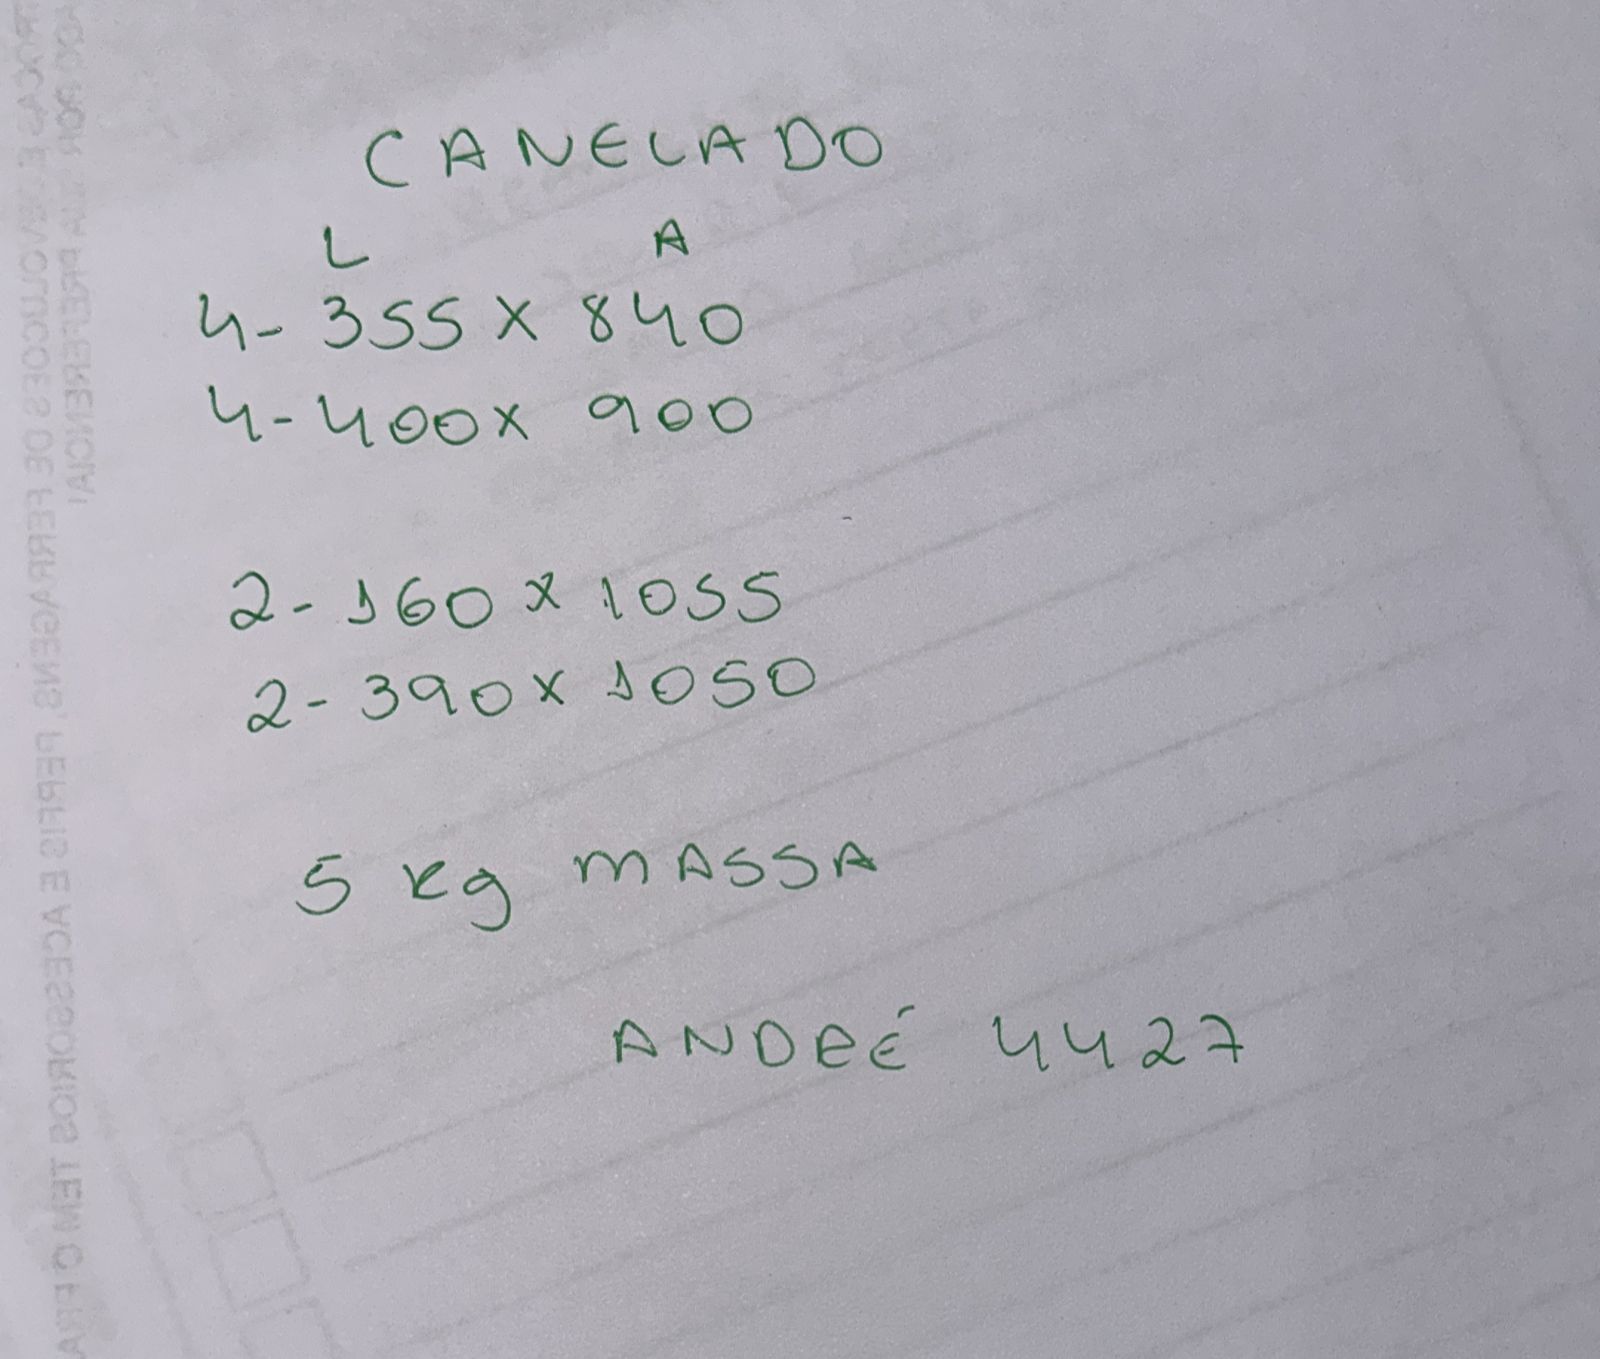 CANELADO
L A
4- 355 x 840
4- 400 x 900
2- 160 x 1055
2- 390 x 1050
5 kg MASSA
ANDRÉ 4427